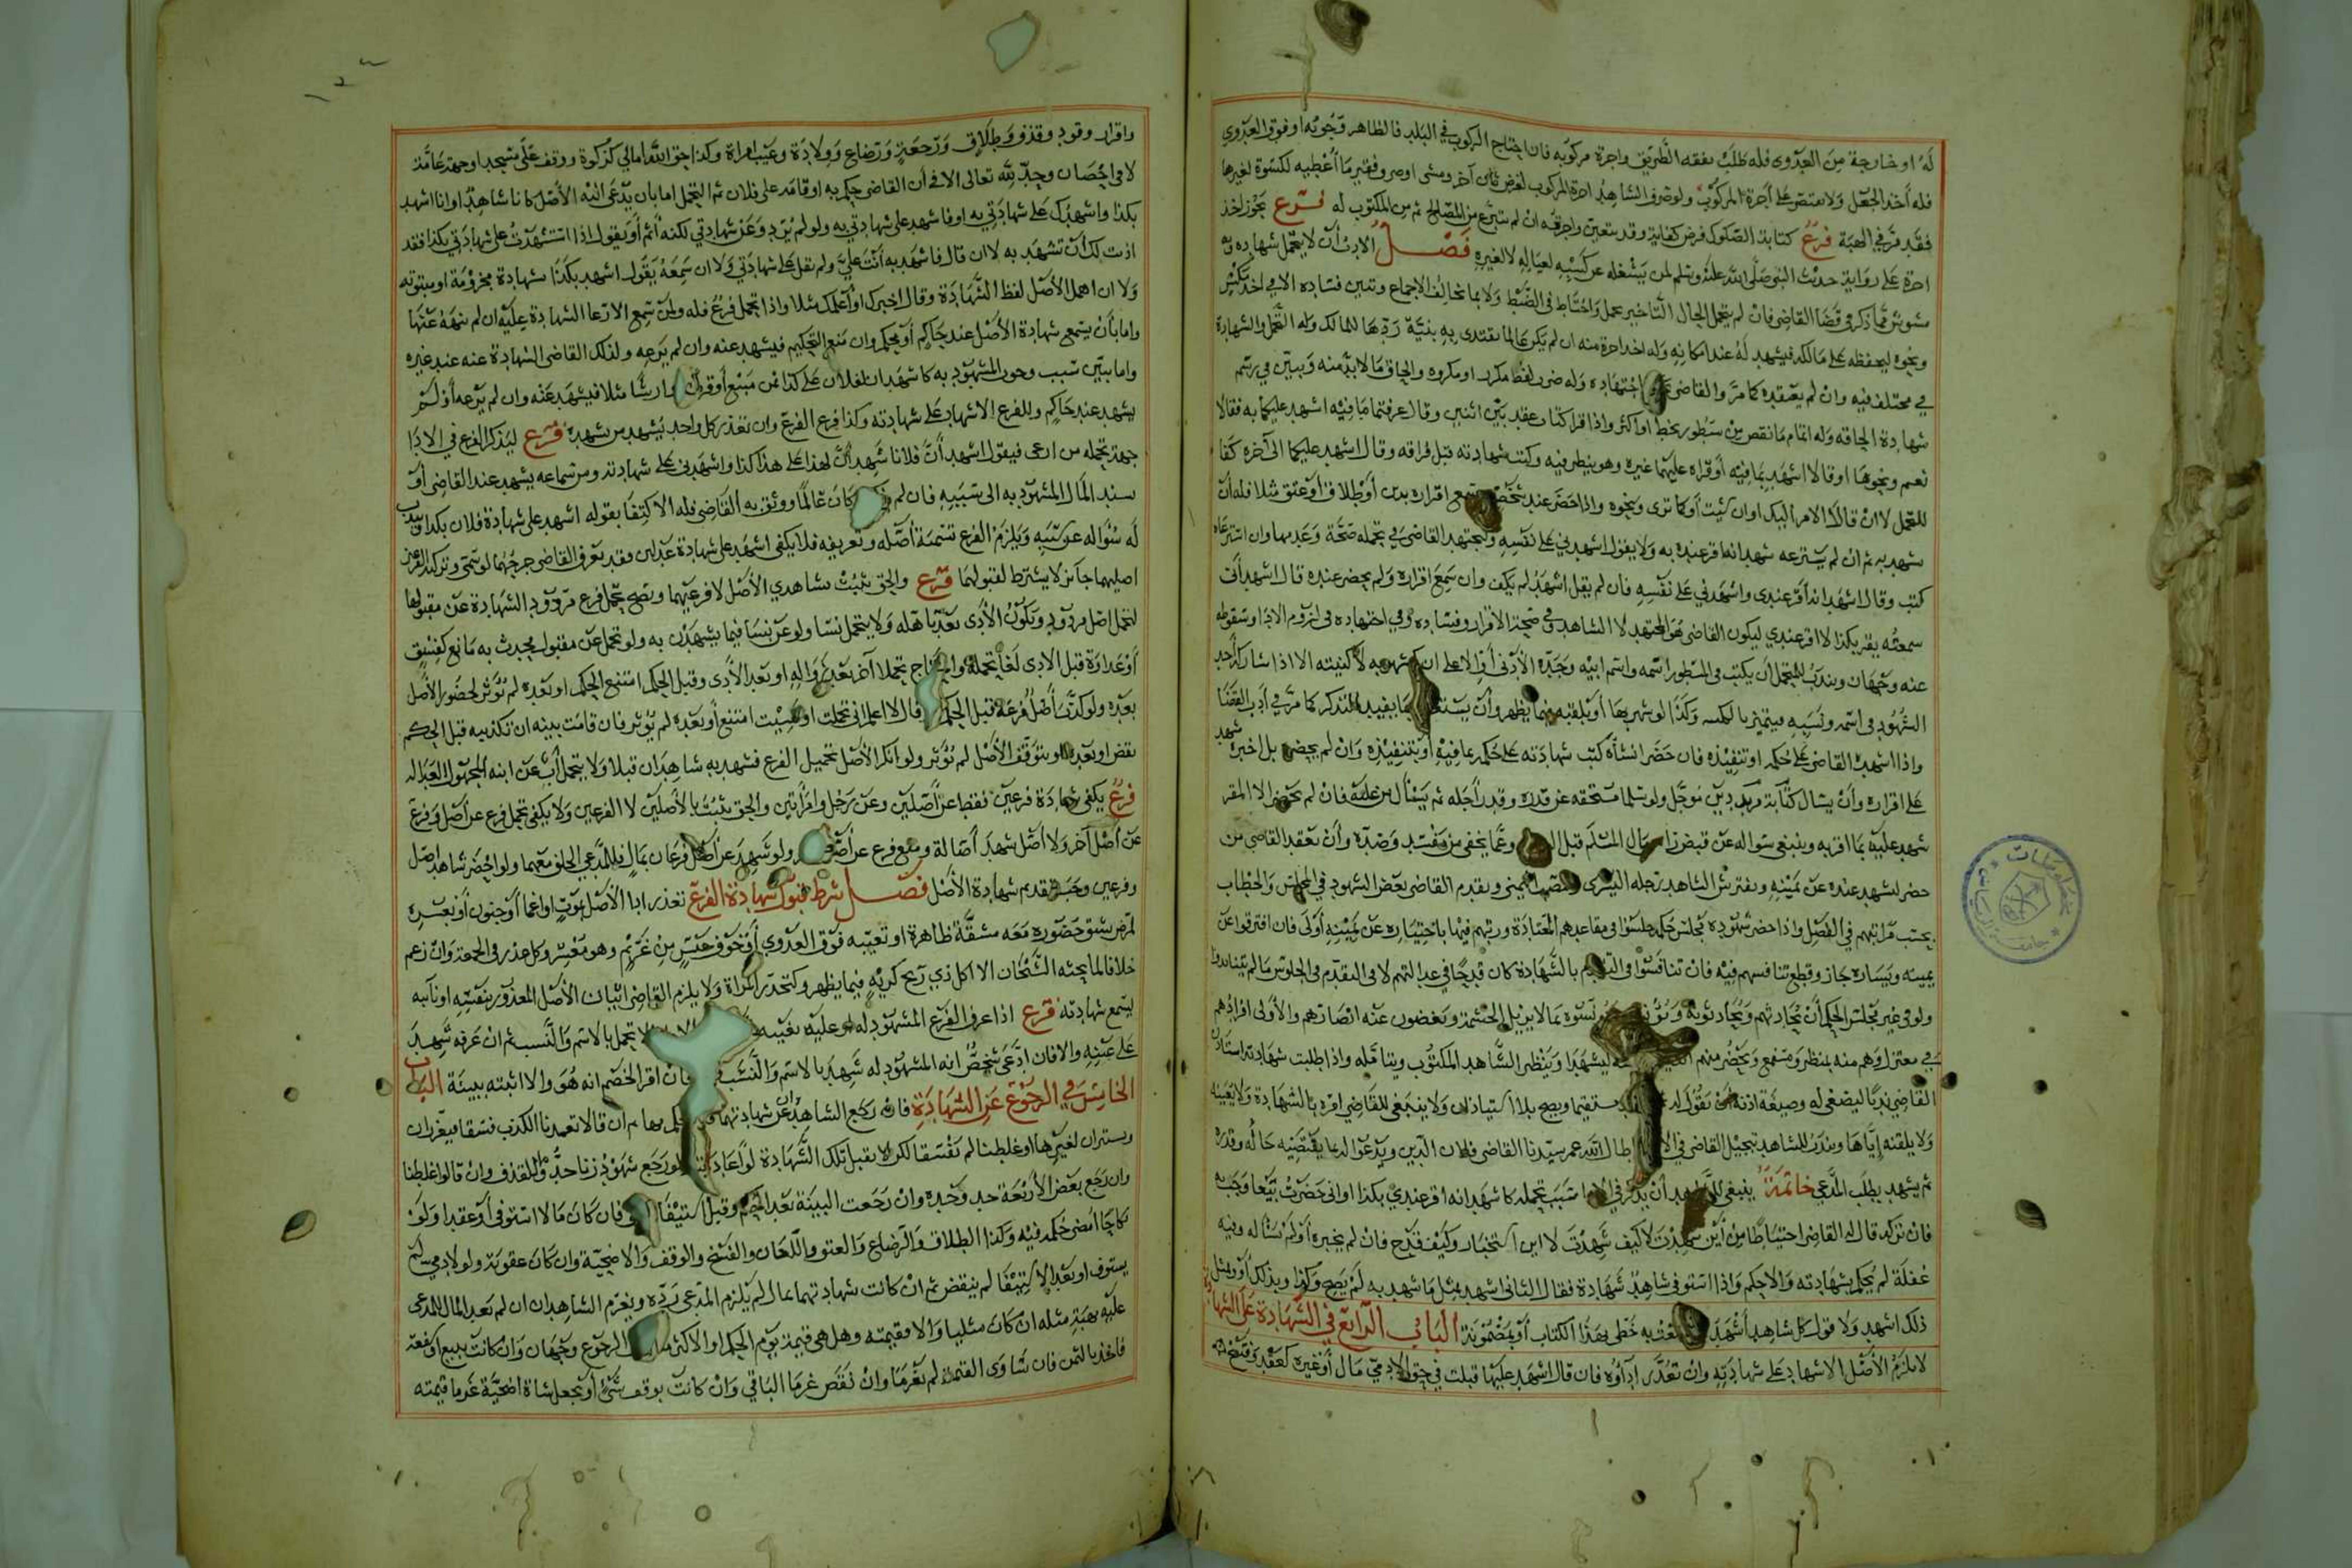 له او خارجة من العدوى فله طلب نفقة الطريق واجرة مركوبه فان احتاج الركوب في البلد فالظاهر وجوبه او فوق العدوى
فله أخذ الجعل ولا يقتصر على أجرة المركوب ولو صرف الشاهد اجرة المركوب لغرض آخر ومشى او صرف فقير ما أعطيه لكسوة لغيرها
فقد مرّ في الهبة فرع كتابة الصكوك فرض كفاية وقد يتعين واجرته ان لم يتبرع من المصالح ثم من المكتوب له فرع يجوز اخذ
اجرة على رواية حديث النبي صلى الله عليه وسلم لمن يشغله عن كسبه لعياله لا لغيره فصل الادب أن لا يتحمل شهاده وبه
مشوش مما ذكر في قضا القاضي فان لم يحتمل الحال التاخير تحمل واحتاط في الضبط ولا بما يخالف الاجماع وتبين فساده الا في اخذ مكس
ونحوه ليحفظه على مالكه فيشهد له عند امكانه وله اخذ اجرة منه ان لم يكن عالما يقتدى به بنية ردها للمالك وله التحمل والشهادة
في مختلف فيه وان لم يعتقده كما مرّ والقاضي اجتهاده وله ضرب لفظ مكرر او مكروه والحاق ما لا بد منه ويبين في رسم
شهادة الحاقه وله اتمام ما نقص من سطور بخط او اكثر واذا قرا كتاب عقد بين اثنين وقال عرفتما ما فيه اشهد عليكما به فقالا
نعم ونحوها او قالا اشهد بما فيه أو قراه عليهما غيره وهو ينظر فيه وكتب شهادته قبل فراقه وقال اشهد عليكما الى آخره كفا
للتحمل لا ان قالا الامر اليك او ان شئت أو كما ترى ونحوه واذا حضر عند شخص وسمع اقراره بدين أو طلاق أو عتق مثلا فله أن
يشهد به ثم ان لم يسترعه شهد انه اقر عنده به ولا يقول اشهدني على نفسه وليجتهد القاضي في تحمله صحة وعدمها وان استرعاه
كتب وقال اشهد انه أقر عندي واشهدني على نفسه فان لم يقل اشهد لم يكف وان سمع اقراره ولم يحضر عنده قال اشهد أني
سمعته يقر بكذا لا اقر عندي ليكون القاضي هو المجتهد لا الشاهد في صحة الاقرار وفساده وفي اجتهاده في لزوم الادا وسقوطه
عنه وجهان ويندب للمتحمل أن يكتب في المسطور اسمه واسم ابيه وجده الأدنى أو الاعلى ان شهر به لا كنيته الا اذا شاركه أحد
الشهود في اسمه ونسبه فيتميز بالكنية وكذا لو شهر بها أو بلقبه فيما يظهر وأن بما يفيده التذكر كما مر في أدب القضا
واذا اشهده القاضي على حكمه او تنفيذه فان حضر انشاه كتب شهادته على حكمه بما فيه أو بتنفيذه وان لم يحضر بل اخبره شهد
على اقراره وأن يسال كتابة مريد دين مؤجل ولو سلما مستحقه عن قدره وقدر أجله ثم يسأل من عليه فان لم يحضر الا المقر
شهد عليه بما اقر به وينبغي سواله عن قبض راس مال السلم قبل وعما يخفى من مفسد وضده وأن يقعد القاضي من
حضر ليشهد عنده عن يمينه ويفترش الشاهد رجله اليسرى اليمنى ويقدم القاضي بعض الشهود في المجلس والخطاب
بحسب مراتبهم في الفضل واذا حضر شهوده مجلس حكمه جلسوا في مقاعدهم المعتادة ورتبهم فيها باختياره عن يمينه أولى فان افترقوا عن
يمينه ويساره جاز وقطع تنافسهم فيه فان تنافسوا في التقديم بالشهادة كان قدحا في عدالتهم لا في التقدم في الجلوس ما لم يتنابذوا
ولو في غير مجلس الحكم أن يحادثهم ويحادثونه بما لا يزيل الحشمة ويغضون عنه ابصارهم والأولى افرادهم
في معتزل وهم منه بمنظر ومسمع ويحضر منهم ليشهدا وينظر الشاهد المكتوب ويتامله واذا طلبت شهادته استاذن
القاضي ندبا ليصغي له وصيغة اذنه أن يقول له مستقيما ويصح بلا استيذان ولا ينبغي للقاضي امره بالشهادة ولا يعينه
ولا يلقنه إياها ويندب للشاهد تبجيل القاضي في اطال الله عمر سيدنا القاضي فلان الدين ويدعو له بما يقتضيه حاله وقدره
ثم يشهد بطلب المدعي خاتمة ينبغي للشاهد أن يذكر في الادا سبب تحمله كاشهد انه اقر عندي بكذا او اني حضرت بيعا وجب به
فان تركه قال له القاضي احتياطا من أين شهدت لا كيف شهدت لا اين استخبار وكيف قدح فان لم يخبره أو لم يساله وبه
غفلة لم يحكم بشهادته والا حكم واذا استوفى شاهد شهادة فقال الثاني اشهد بمثل ما شهد به لم يصح وكذا وبذلك أو بمثل
ذلك اشهد ولا قول كل شاهد أشهد به خطي بهذا الكتاب أو بمضمونه الباب الرابع في الشهادة على الشهادة
لا يلزم الأصل الاشهاد على شهادته وان تعذر اداؤه فان قال اشهد عليها قبلت في حق الادمي مال أو غيره كعقد وفسخ
واقرار وقود وقذف وطلاق ورجعة ورضاع وولادة وعيب امراة وكذا حق الله المالي كزكوة ووقف على مسجد او جهة عامة
لا في احصان وحد لله تعالى الا في أن القاضي حكم به او اقامه على فلان ثم التحمل اما بان يدعى اليه الأصل كانا شاهد او انا اشهد
بكذا واشهدك على شهادتي به او فاشهد على شهادتي به ولو لم يزد وعن شهادتي لكنه أتم أو يقول اذا استشهدت على شهادتي بكذا فقد
اذنت لك أن تشهد به لا ان قال فاشهد به أنت علي ولم يقل على شهادتي ولا ان سمعه يقول اشهد بكذا شهادة مجزومة او مبتوته
ولا ان اهمل الأصل لفظ الشهادة وقال اخبرك أو أعلمك مثلا واذا تحمل فرع فله ولمن سمع الاسترعا الشهادة عليه ان لم ينهه عنها
واما بأن يسمع شهادة الأصل عند حاكم أو محكم وان منع التحكيم فيشهد عنه وان لم يرعه ولذلك القاضي الشهادة عنه عند غيره
واما ببين سبب وجوب المشهود به كاشهد ان لفلان على كذا من مبيع أو قرض أو ارشا مثلا فيشهد عنه وان لم يرعه أو لم
يشهد عند حاكم وللفرع الاشهاد على شهادته وكذا فرع الفرع وان تعذر كل واحد يشهد من يشهده فرع ليذكر الفرع في الادا
جهة تحمله من ادعى فيقول اشهد أن فلانا شهد أن لهذا على هذا كذا واشهدني على شهادته ومن سماعه يشهد عند القاضي أو
يسند المال المشهود به الى سببه فان لم كان عالما ووثق به القاضي فله الاكتفا بقوله اشهد على شهادة فلان بكذا ويندب
له سؤاله عن سببه ويلزم الفرع تسمية أصله وتعريفه فلا يكفي اشهد على شهادة عدلين فقد يعرف القاضي جرحهما لو سمى وتزكية الفرع
اصليهما جائز لا يشترط لقبولهما فرع والحق يثبت بشاهدي الأصل لا فرعيهما ويصح تحمل فرع مردود الشهادة عن مقبولها
لتحمل اصل مردود ويكون الأدى بعد تاهله ولا يتحمل نسا ولو عن نسا فيما يشهدن به ولو تحمل عن مقبول فحدث به مانع كفسق
أو عداوة قبل الادى لغا تحمله واحتاج تحملا آخر بعد زواله او بعد الأدى وقبل الحكم امتنع الحكم او بعده لم يؤثر لحضور الأصل
بعده ولو كذب أصل فرعه قبل الحكم قال لا اعلم اني تحملت او نسيت امتنع أو بعده لم يؤثر فان قامت بينة ان تكذيبه قبل الحكم
نقض او بعده او بتوقف الأصل لم يؤثر ولو انكر الأصل تحميل الفرع فشهد به شاهدان قبلا ولا يتحمل أب عن ابنه المجهول العدالة
فرع يكفي شهادة فرعين فقط عن أصلين وعن رجل وامرأتين والحق يثبت بالأصلين لا الفرعين ولا يكفي تحمل فرع عن اصل وفرع
عن أصل آخر ولا أصل شهد أصالة ومع فرع عن أصل ولو شهد عن أصل فرعان بمال فللمدعي الحلف معهما ولو احضر شاهد اصل
وفرعين وجب تقديم شهادة الأصل فصل شرط قبول شهادة الفرع تعذر ادا الأصل بموت او اغما أو جنون أو بعسره
لمرض يشق حضوره معه مشقة ظاهرة او تغيبه فوق العدوى أو خوف حبس من غريم وهو معسر وكل عذر في الجمعة وان زعم
خلافا لما بحثه الشيخان الا اكل ذي ريح كريه فيما يظهر وكتخدر المراة ولا يلزم القاضي اتيان الأصل المعذور بنفسه او نائبه
ليسمع شهادته فرع اذا عرف الفرع المشهود له او عليه بعينه لا تحمل بالاسم والنسب ثم ان عرفه شهد
على عينه والا فان ادعى شخص انه المشهود له شهد بالاسم والنسب فان اقر الخصم انه هو والا اثبته ببينة الباب
الخامس في الرجوع عن الشهادة فان رجع الشاهدان عن شهادتهما بها ثم ان قالا تعمدنا الكذب فسقا فيعزران
ويستران لغيرها او غلطنا لم يفسقا لكن لا يقبل تلك الشهادة لو أعاداها ولو رجع شهود زنا حدوا للقذف وان قالوا غلطنا
وان رجع بعض الأربعة حد وحده وان رجعت البينة بعد الحكم وقبل استيفا فان كان مالا استوفى أو عقدا ولو
نكاحا امضى حكمه فيه وكذا الطلاق والرضاع والعتق واللعان والفسخ والوقف والاضحية وان كان عقوبة ولو لادمي لم
يستوف او بعد الاستيفا لم ينقض ثم ان كانت شهادتهما بمال لم يلزم المدعي رده ويغرم الشاهدان ان لم يعد المال للمدعى
عليه بهبة مثله ان كان مثليا والا فقيمته وهل هي قيمة يوم الحكم او الاكثر الرجوع وجهان وان كانت ببيع او شفعة
فاخذ بالثمن فان ساوى القيمة لم يغرما وان نقص غرما الباقي وان كانت بوقف شي أو بجعل شاة اضحية غرما قيمته